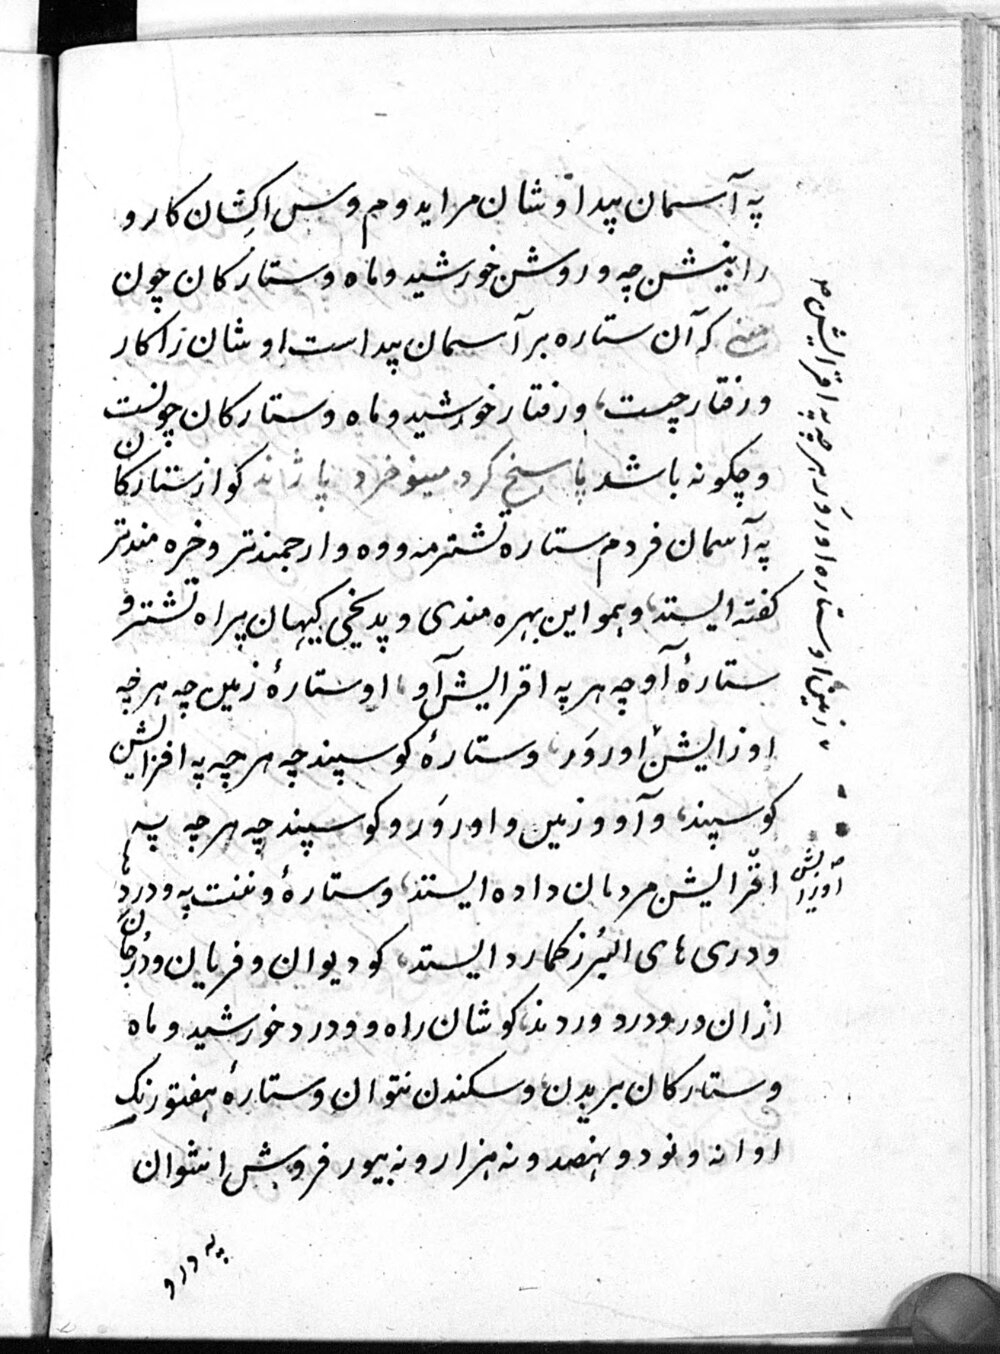 په آسمان پیدا و شان مر ایدوم و بس اکِشان کار و
رابینش چه و روشن خورشید و ماه و ستارکان چون
معنی که آن ستاره بر آسمان پیداست اوشان را کار
و رفتار چیست، و رفتار خورشید و ماه و ستارکان چونست
و چکونه باشد پاسخ کرد مینو خرد پاژند کو از ستارکان
په آسمان فردم ستاره تشتر مه و وه و ارجمندتر و خره مندتر
کفته ایستد، و همو این بهره مندی و پدیخی کیهان پراه تشتر و
ستارۀ آو چه هر په افرایش آو، او ستارۀ زمین چه هر چه
او زایش اورَوَر، و ستارۀ کوسپند چه هر چه په افزایش
کوسپند، و آو و زمین و اورَوَر و کوسپند چه هر چه په
افزایش مردمان داده ایستد، و ستارۀ وننت په ودردها
و دری های البُرز کمارد ایستد، کو دیوان و فریان و دُرجان
از ان در و درد وردند، کوشان راه و ودرد خورشید و ماه
و ستارکان بریدن، و سکندن نتوان و ستارۀ هفتورنک
اوا نه و نود و نهصد و نه هزار و نه بیور فروش اشوان
په درو
زمین، او ستاره اورَوَر هر چه په افرایش
او زایش